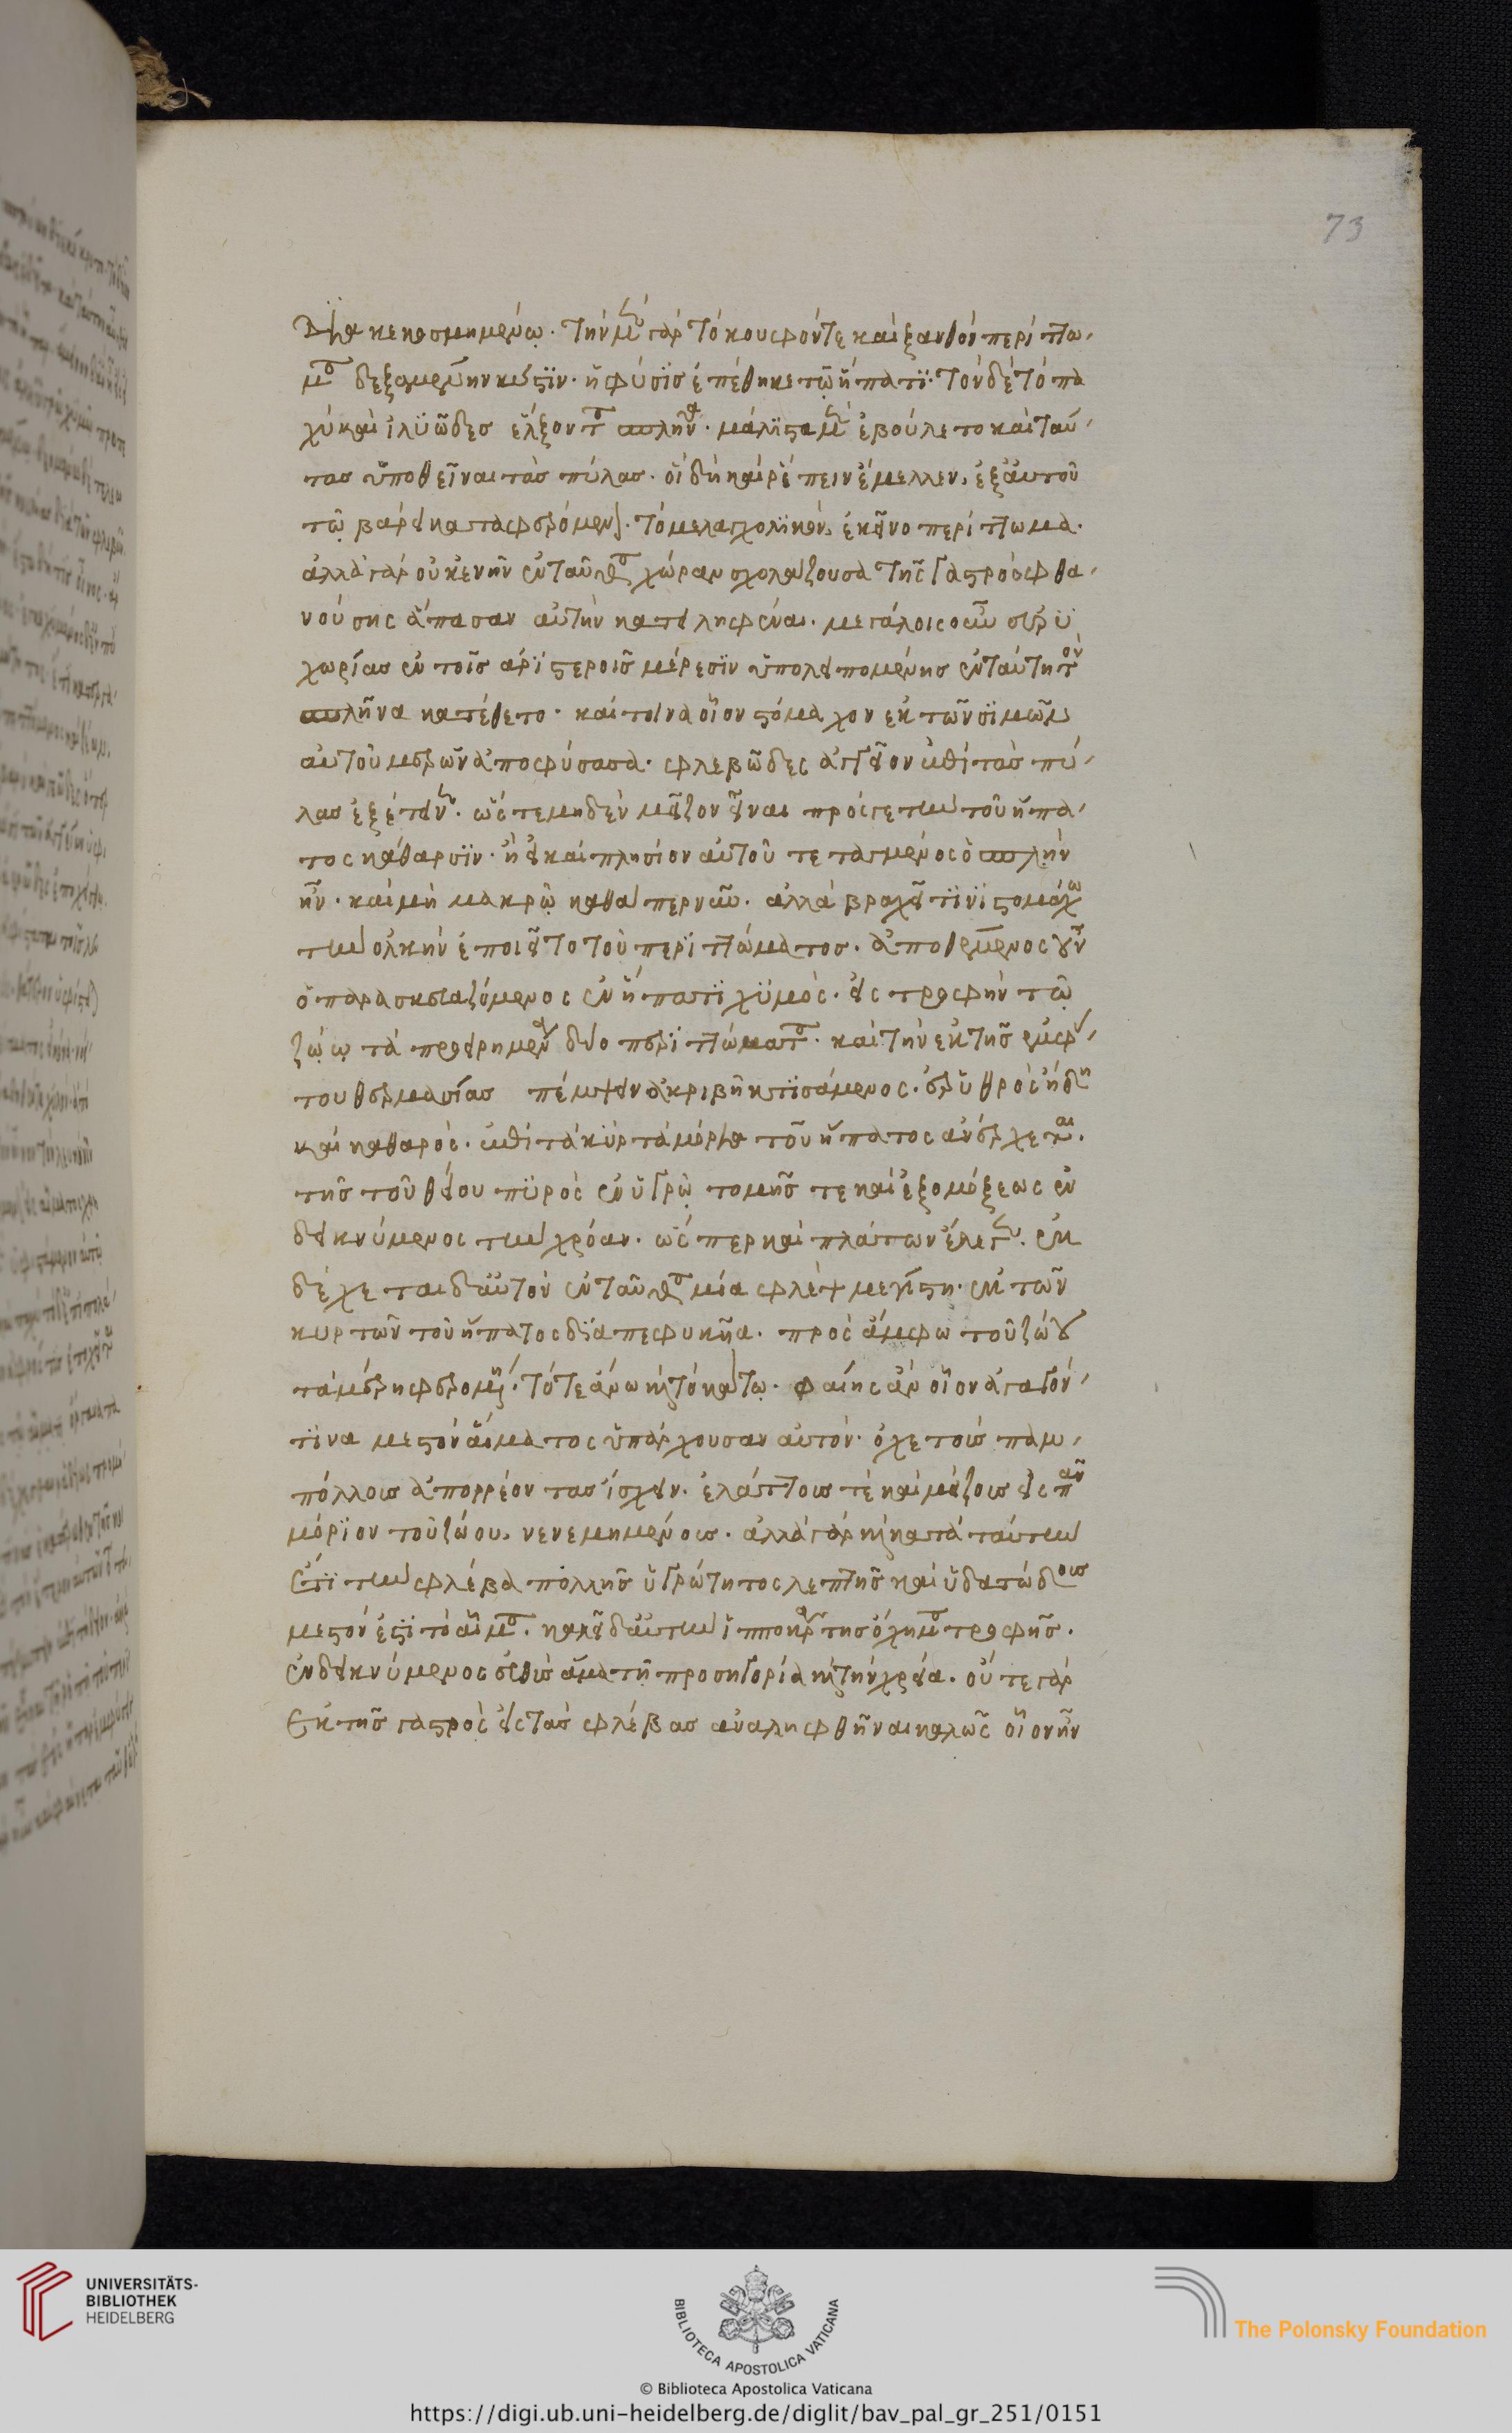 Δϊα κεκοσμημένῳ. τὴν μὲν γὰρ τὸ κουφόν τε καὶ ξανθὸν περίττω
μα δεξαμένην κύστϊν. ἡ φύσϊσ ἐπέθηκε τῷ ἥπατϊ. τὸν δὲ τὸ πα
χὺ καὶ ἰλϋῶδεσ ἕλξοντα σπλῆνα. μάλϊστα μὲν ἐβούλετο καὶ ταύ
τασ ὑποθεῖναι τὰσ πύλασ. οἷ δὴ καὶ ῥέπειν ἔμελλεν. ἐξ αὑτοῦ
τῷ βάρει καταφερόμενον. τὸ μελαγχολϊκὸν ἐκεῖνο περίττωμα.
ἀλλὰ γὰρ οὐκ ἐνῆν ἐνταῦθα χώραν σχολάζουσα τῆς γαστρὸς φθα
νούσης ἅπασαν αὐτὴν κατειληφέναι. μεγάλοις οὖν εὐρϋ
χωρίας ἐν τοῖσ αρϊστεροισ μέρεσϊν ὑπολειπομένησ ἐνταύτη τὸν
σπλῆνα κατέθετο. καί τινα οἷον στόμαχον ἐκ τῶν σϊμῶν
αὐτοῦ μερῶν ἀποφύσασα. φλεβῶδες ἀγγεῖον ἐπὶ τὰσ πύ
λασ ἐξέτεινεν. ὥστε μηδὲν μεῖζον εἶναι πρόσγε τὴν τοῦ ἥπα
τος κάθαρσϊν. ἢ εἰ καὶ πλησίον αὐτοῦ τεταγμένος ὁ σπλὴν
ἦν. καὶ μὴ μακρῷ καθάπερ νῦν. αλλὰ βραχεῖ τϊνὶ στομάχω
τὴν ὁλκὴν ἐποιεῖτο τοῦ περϊττώματοσ. ἀποθέμενος οὖν
ὁ παρασκευαζόμενος ἐν ἥπατϊ χϋμὸς. εἰς τροφὴν τῷ
ζώῳ τὰ προειρημένα δύο περϊττώματα. καὶ τὴν ἐκ τῆσ ἐμφύ
του θερμασίασ πέμψιν ἀκριβῆ κτϊσάμενος. ἐρϋθρὸς ἤδη
καὶ καθαρὸς. ἐπὶ τὰ κϋρτὰ μόρϊα τοῦ ἥπατος ἀνέρχεται.
τῆσ τοῦ θείου πϋρὸς ἐν ὑγρῷ τομῆσ τε καὶ ἐξομόξεως ἐν
δεικνύμενος τὴν χρόαν. ὥς περ καὶ πλάτων ἔλεγεν. ἐκ
δέχεται δ αὐτὸν ἐνταῦθα μία φλὲψ μεγίστη. ἐκ τῶν
κυρτῶν τοῦ ἥπατος δϊαπεφυκῦια. πρὸς ἄμφω τοῦ ζώου
τὰ μέρη φερομένη. τό τε ἄνω καὶ τὸ κάτω. φαίης ἂν οἷον ἀγωγόν
τϊνα μεστὸν αἵματος ὑπάρχουσαν αὐτὸν. ὀχετοὺσ παμ
πόλλουσ ἀπορρέοντασ ἴσχειν. ἐλάττουσ τὲ καὶ μείζουσ εἰς πᾶν
μόρϊον τοῦ ζώου. νενεμημένουσ. ἀλλὰ γὰρ καὶ κατὰ ταύτην
ἔτϊ τὴν φλέβα πολλῆσ ὑγρότητος λεπτῆσ καὶ ὑδατώδουσ
μεστόν ἐστϊ τὸ αἷμα. καλεῖ δ αὐτὴν ἱπποκράτησ ὄχημα τροφῆσ.
ἐνδεικνύμενος εὐθὺσ ἅμα τῆ προσηγορία καὶ τὴν χρεία. οὔτε γὰρ
Ἐκ τῆσ γαστρὸς εἰς τὰσ φλέβασ αναληφθῆναι καλῶς οἷον ἦν
73
UNIVERSITÄTS-
BIBLIOTHEK
HEIDELBERG
BIBLIOTECA APOSTOLICA VATICANA
The Polonsky Foundation
© Biblioteca Apostolica Vaticana
https://digi.ub.uni-heidelberg.de/diglit/bav_pal_gr_251/0151